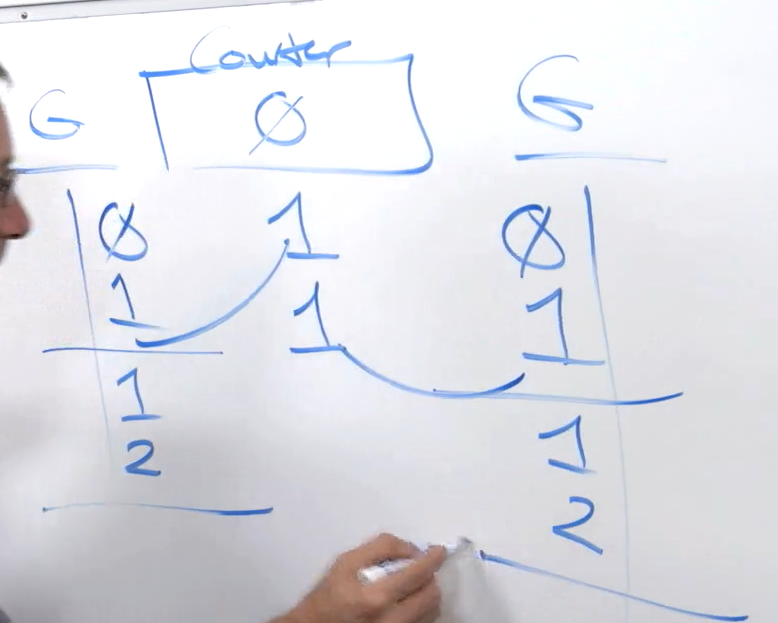 Counter
G Ø G
Ø 1 Ø
1 1 1
1 1
2 2